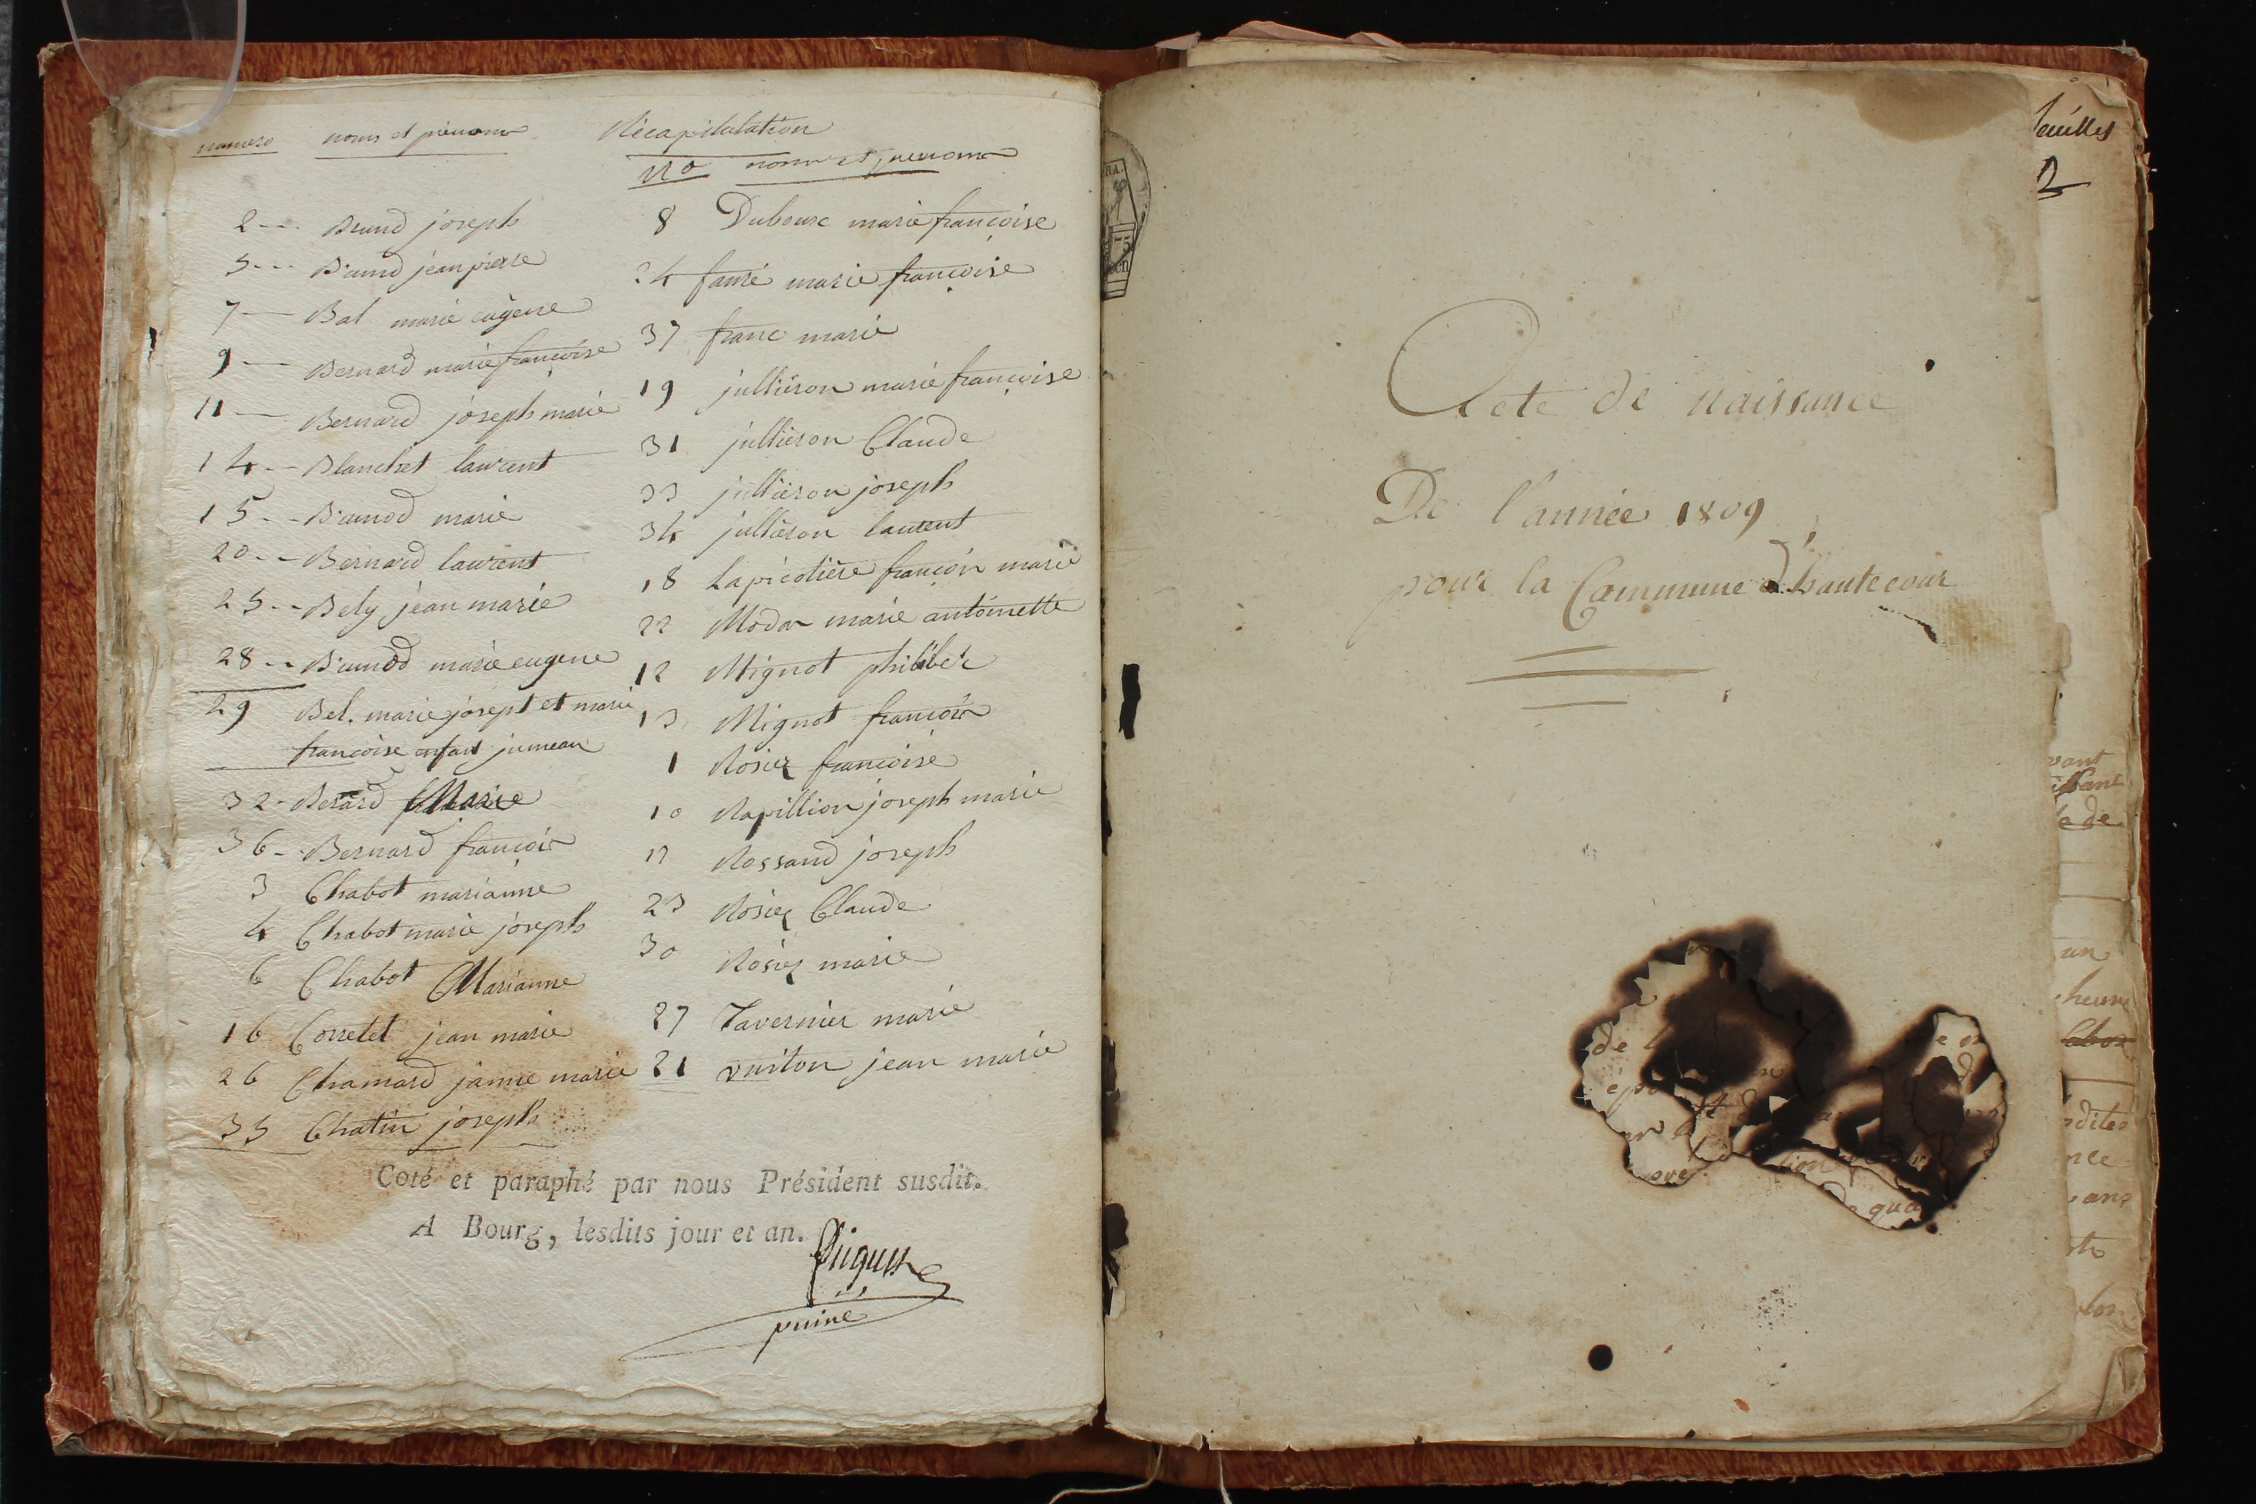 numero noms et prenoms
Récapitulation
No noms et prenoms
2 -- Brund joseph
5 --- jean pierre
7 — Bal marie eugene
9 — Bernard marie françoise
11 — Bernard joseph marie
14 -- Blanchet laurent
15 -- marie
20 -- Bernard laurent
25 -- Bely jean marie
28 -- marie eugene
29 Bel. marie josept et marie
françoise enfant jumeau
32 - Berard Marie
36 - Bernard françois
3 Chabot marianne
4 Chabot marie joseph
6 Chabot Marianne
16 Corretel jean marie
26 Chamard janne marie
35 Chatin joseph
8 Dubourc marie françoise
24 fauré marie françoise
37 franc marie
19 jullieron marie françoise
31 jullieron Claude
33 jullieron joseph
34 jullieron laurent
18 Lapicotiere françois marie
22 Modas marie antoinette
12 Mignot philiber
13 Mignot françois
1 Rosiez françoise
10 Rapillion joseph marie
17 Rossand joseph
23 Rosiez Claude
30 Rosiez marie
27 Tavernier marie
21 vuiton jean marie
Coté et paraphé par nous Président susdit.
A Bourg, lesdits jour et an.
puiné
Acte de naissance
De l'année 1809
pour la Commune d'hautecour
feuilles
2